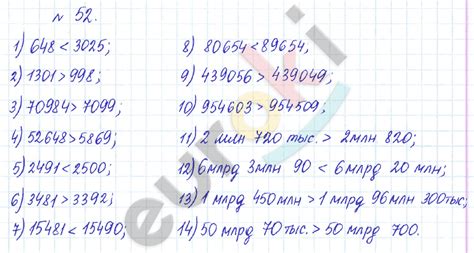 № 52.
1) 648 < 3025;
2) 1301 > 998;
3) 70984 > 7099;
4) 52648 > 5869;
5) 2491 < 2500;
6) 3481 > 3392;
7) 15481 < 15490;
8) 80654 < 89654,
9) 439056 > 439049;
10) 954603 > 954509;
11) 2 млн 720 тыс. > 2млн 820;
12) 6млрд 3млн 90 < 6млрд 20 млн;
13) 1 млрд 450млн > 1 млрд 96млн 300тыс;
14) 50 млрд 70тыс. > 50 млрд 700.
euroki